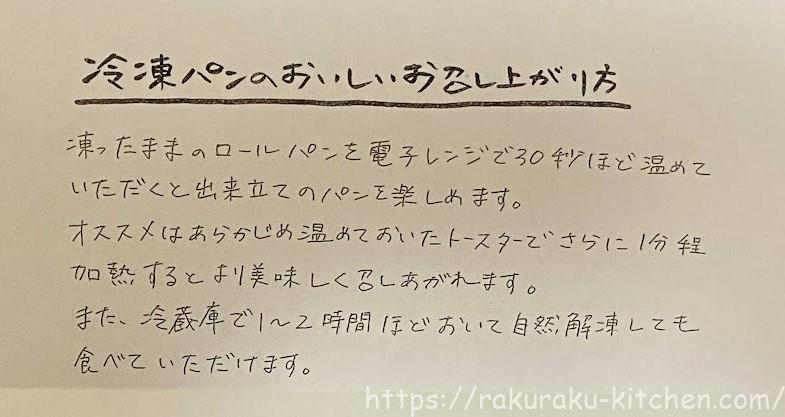 冷凍パンのおいしいお召し上がり方
凍ったままのロールパンを電子レンジで30秒ほど温めて
いただくと出来立てのパンを楽しめます。
オススメはあらかじめ温めておいたトースターでさらに1分程
加熱するとより美味しく召しあがれます。
また、冷蔵庫で1～2時間ほどおいて自然解凍しても
食べていただけます。
https://rakuraku-kitchen.com/